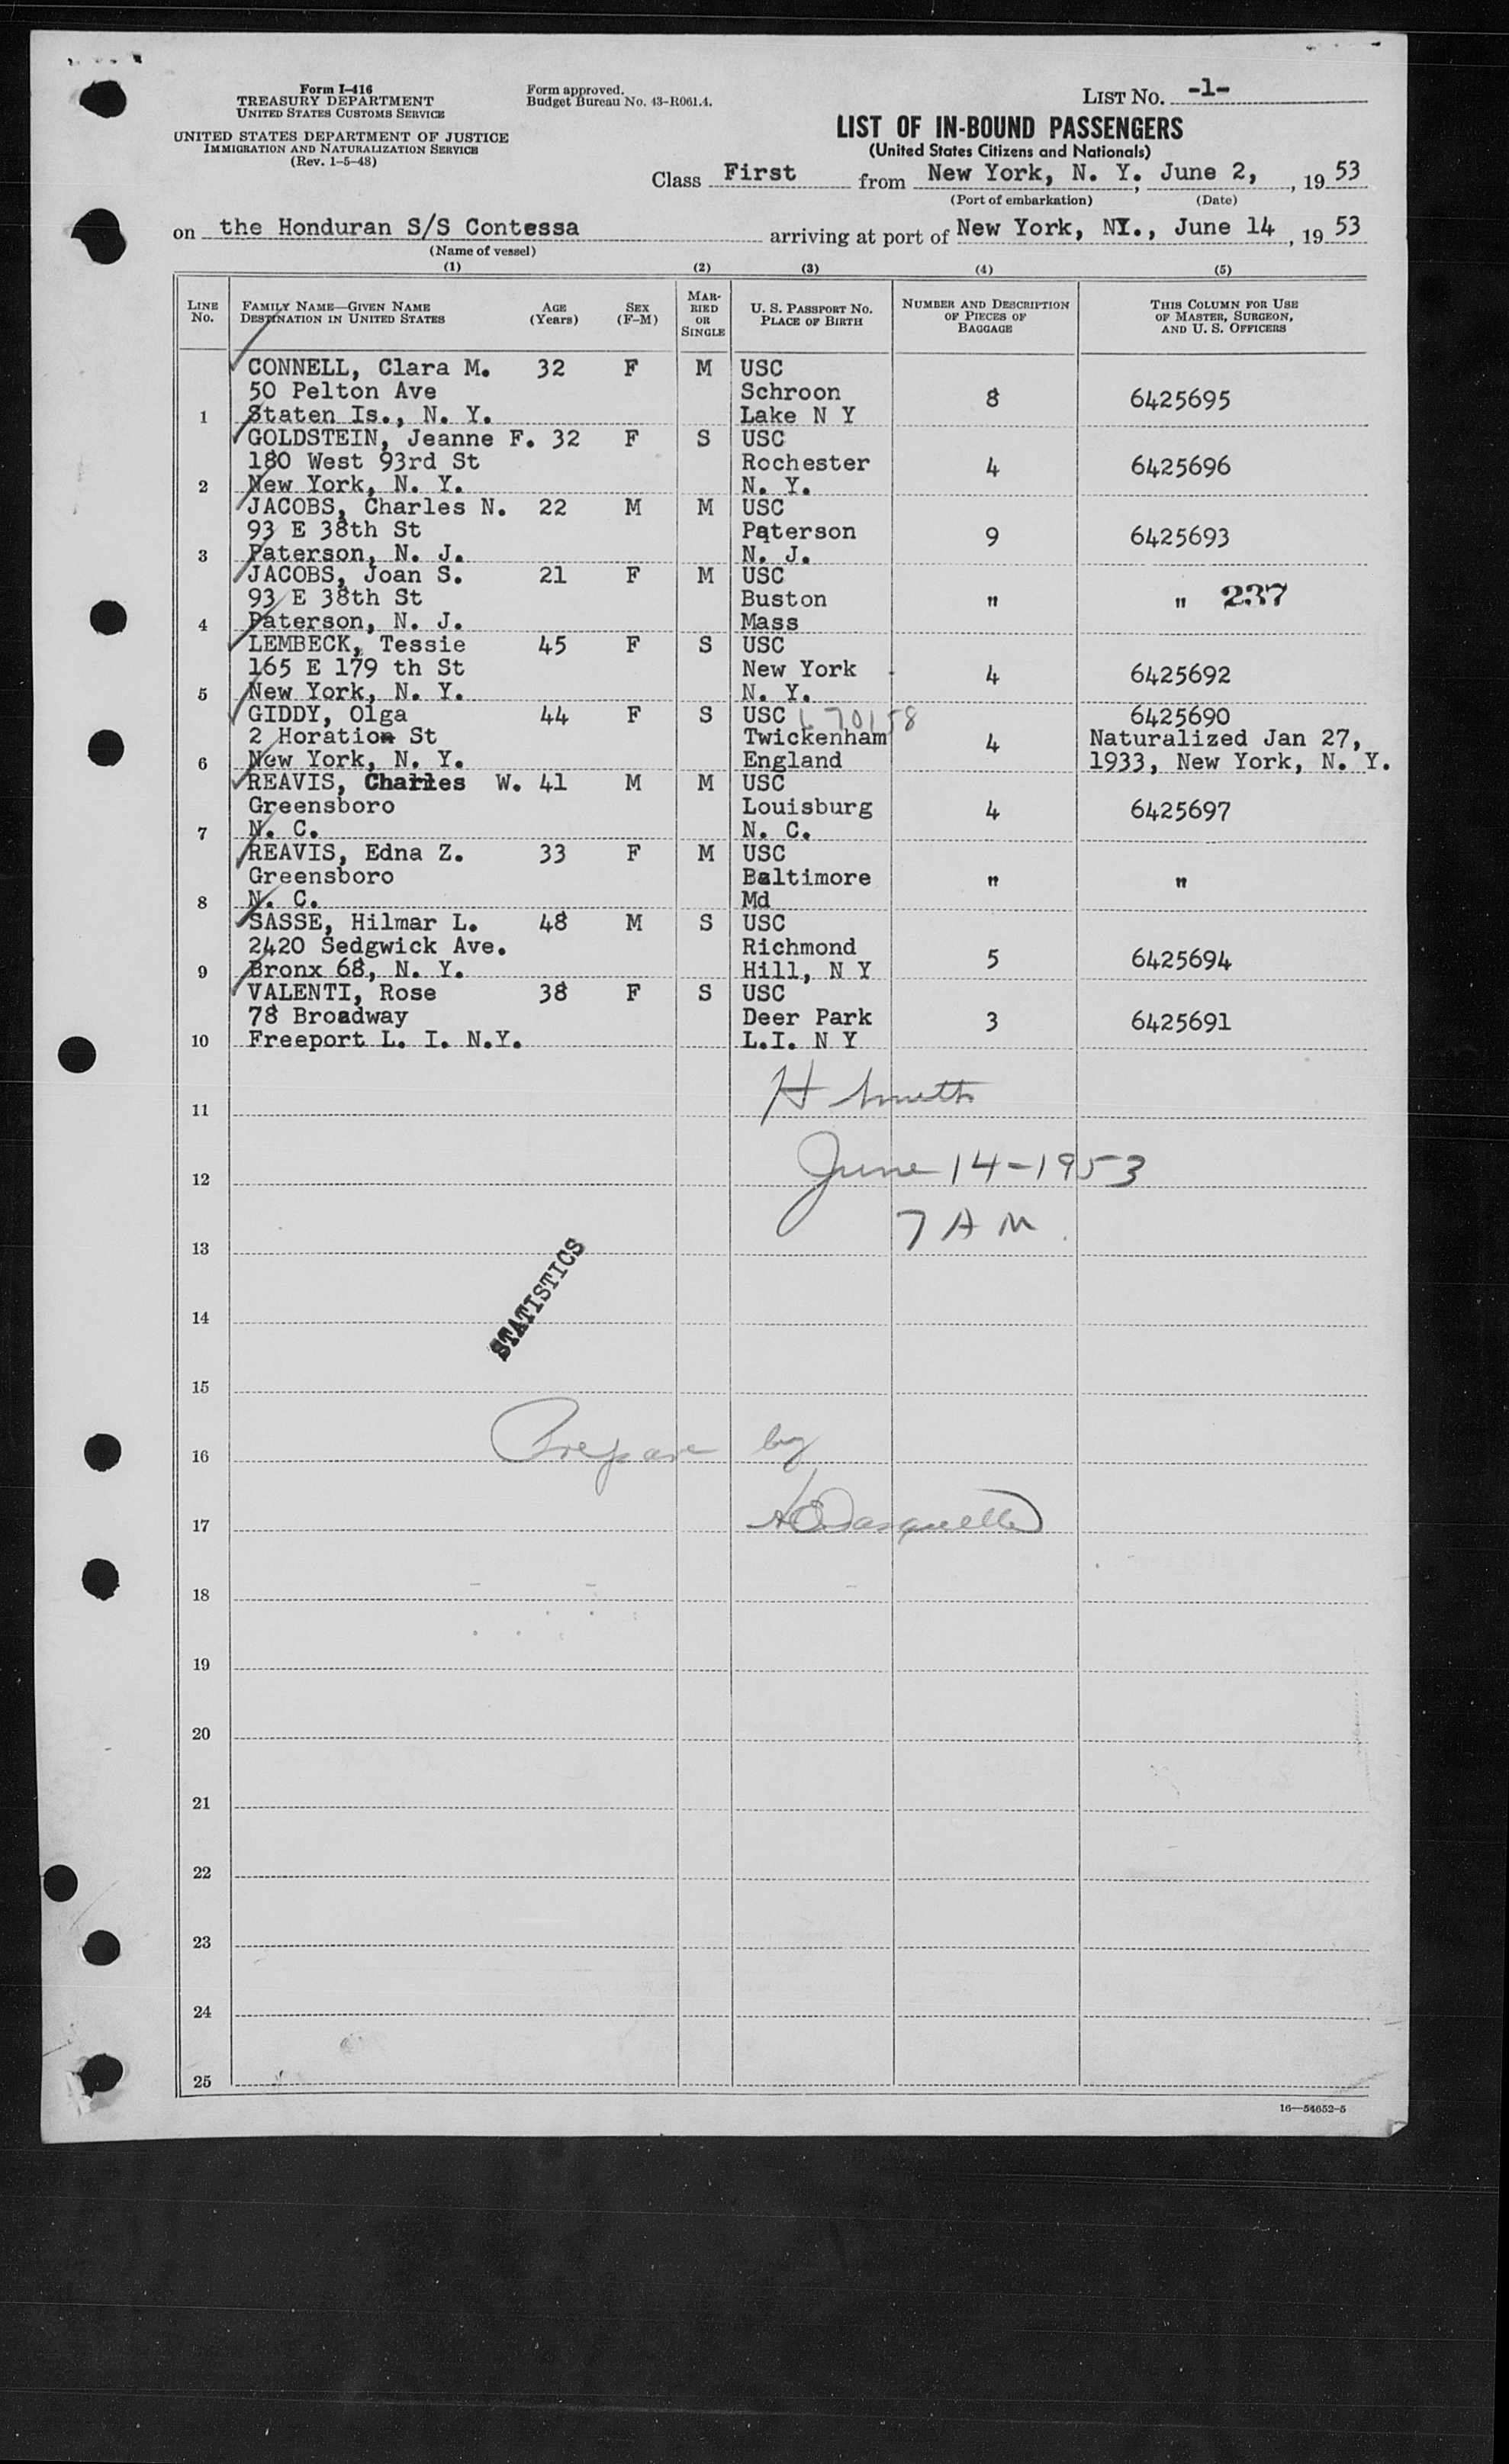 Form I-416
TREASURY DEPARTMENT
UNITED STATES CUSTOMS SERVICE
UNITED STATES DEPARTMENT OF JUSTICE
IMMIGRATION AND NATURALIZATION SERVICE
(Rev. 1-5-48)
Form approved.
Budget Bureau No. 43-R061.4.
LIST NO. -1-
LIST OF IN-BOUND PASSENGERS
(United States Citizens and Nationals)
Class First from New York, N. Y., June 2, , 19 53
(Port of embarkation) (Date)
on the Honduran S/S Contessa arriving at port of New York, NY., June 14 , 19 53
(Name of vessel)
(1) (2) (3) (4) (5)
LINE NO. FAMILY NAME—GIVEN NAME DESTINATION IN UNITED STATES AGE (Years) SEX (F-M) MARRIED OR SINGLE U. S. PASSPORT NO. PLACE OF BIRTH NUMBER AND DESCRIPTION OF PIECES OF BAGGAGE THIS COLUMN FOR USE OF MASTER, SURGEON, AND U. S. OFFICERS
CONNELL, Clara M. 32 F M USC
50 Pelton Ave Schroon 8 6425695
1 Staten Is., N. Y. Lake N Y
GOLDSTEIN, Jeanne F. 32 F S USC
180 West 93rd St Rochester 4 6425696
2 New York, N. Y. N. Y.
JACOBS, Charles N. 22 M M USC
93 E 38th St Paterson 9 6425693
3 Paterson, N. J. N. J.
JACOBS, Joan S. 21 F M USC
93 E 38th St Buston " " 237
4 Paterson, N. J. Mass
LEMBECK, Tessie 45 F S USC
165 E 179 th St New York 4 6425692
5 New York, N. Y. N. Y.
GIDDY, Olga 44 F S USC 70158 6425690
2 Horation St Twickenham 4 Naturalized Jan 27,
6 New York, N. Y. England 1933, New York, N. Y.
REAVIS, Charles W. 41 M M USC
Greensboro Louisburg 4 6425697
7 N. C. N. C.
REAVIS, Edna Z. 33 F M USC
Greensboro Baltimore " "
8 N. C. Md
SASSE, Hilmar L. 48 M S USC
2420 Sedgwick Ave. Richmond 5 6425694
9 Bronx 68, N. Y. Hill, N Y
VALENTI, Rose 38 F S USC
78 Broadway Deer Park 3 6425691
10 Freeport L. I. N.Y. L.I. N Y
11 H Smith
12 June 14-1953
13 7 AM
STATISTICS
14
15
16 Prepare by
17
18
19
20
21
22
23
24
25
16—54652-5